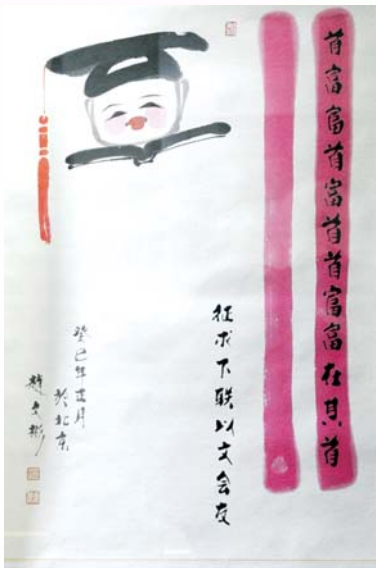 首富富首富首首富富在其首
征求下联以文会友
癸巳年正月
於北京
趙文彬